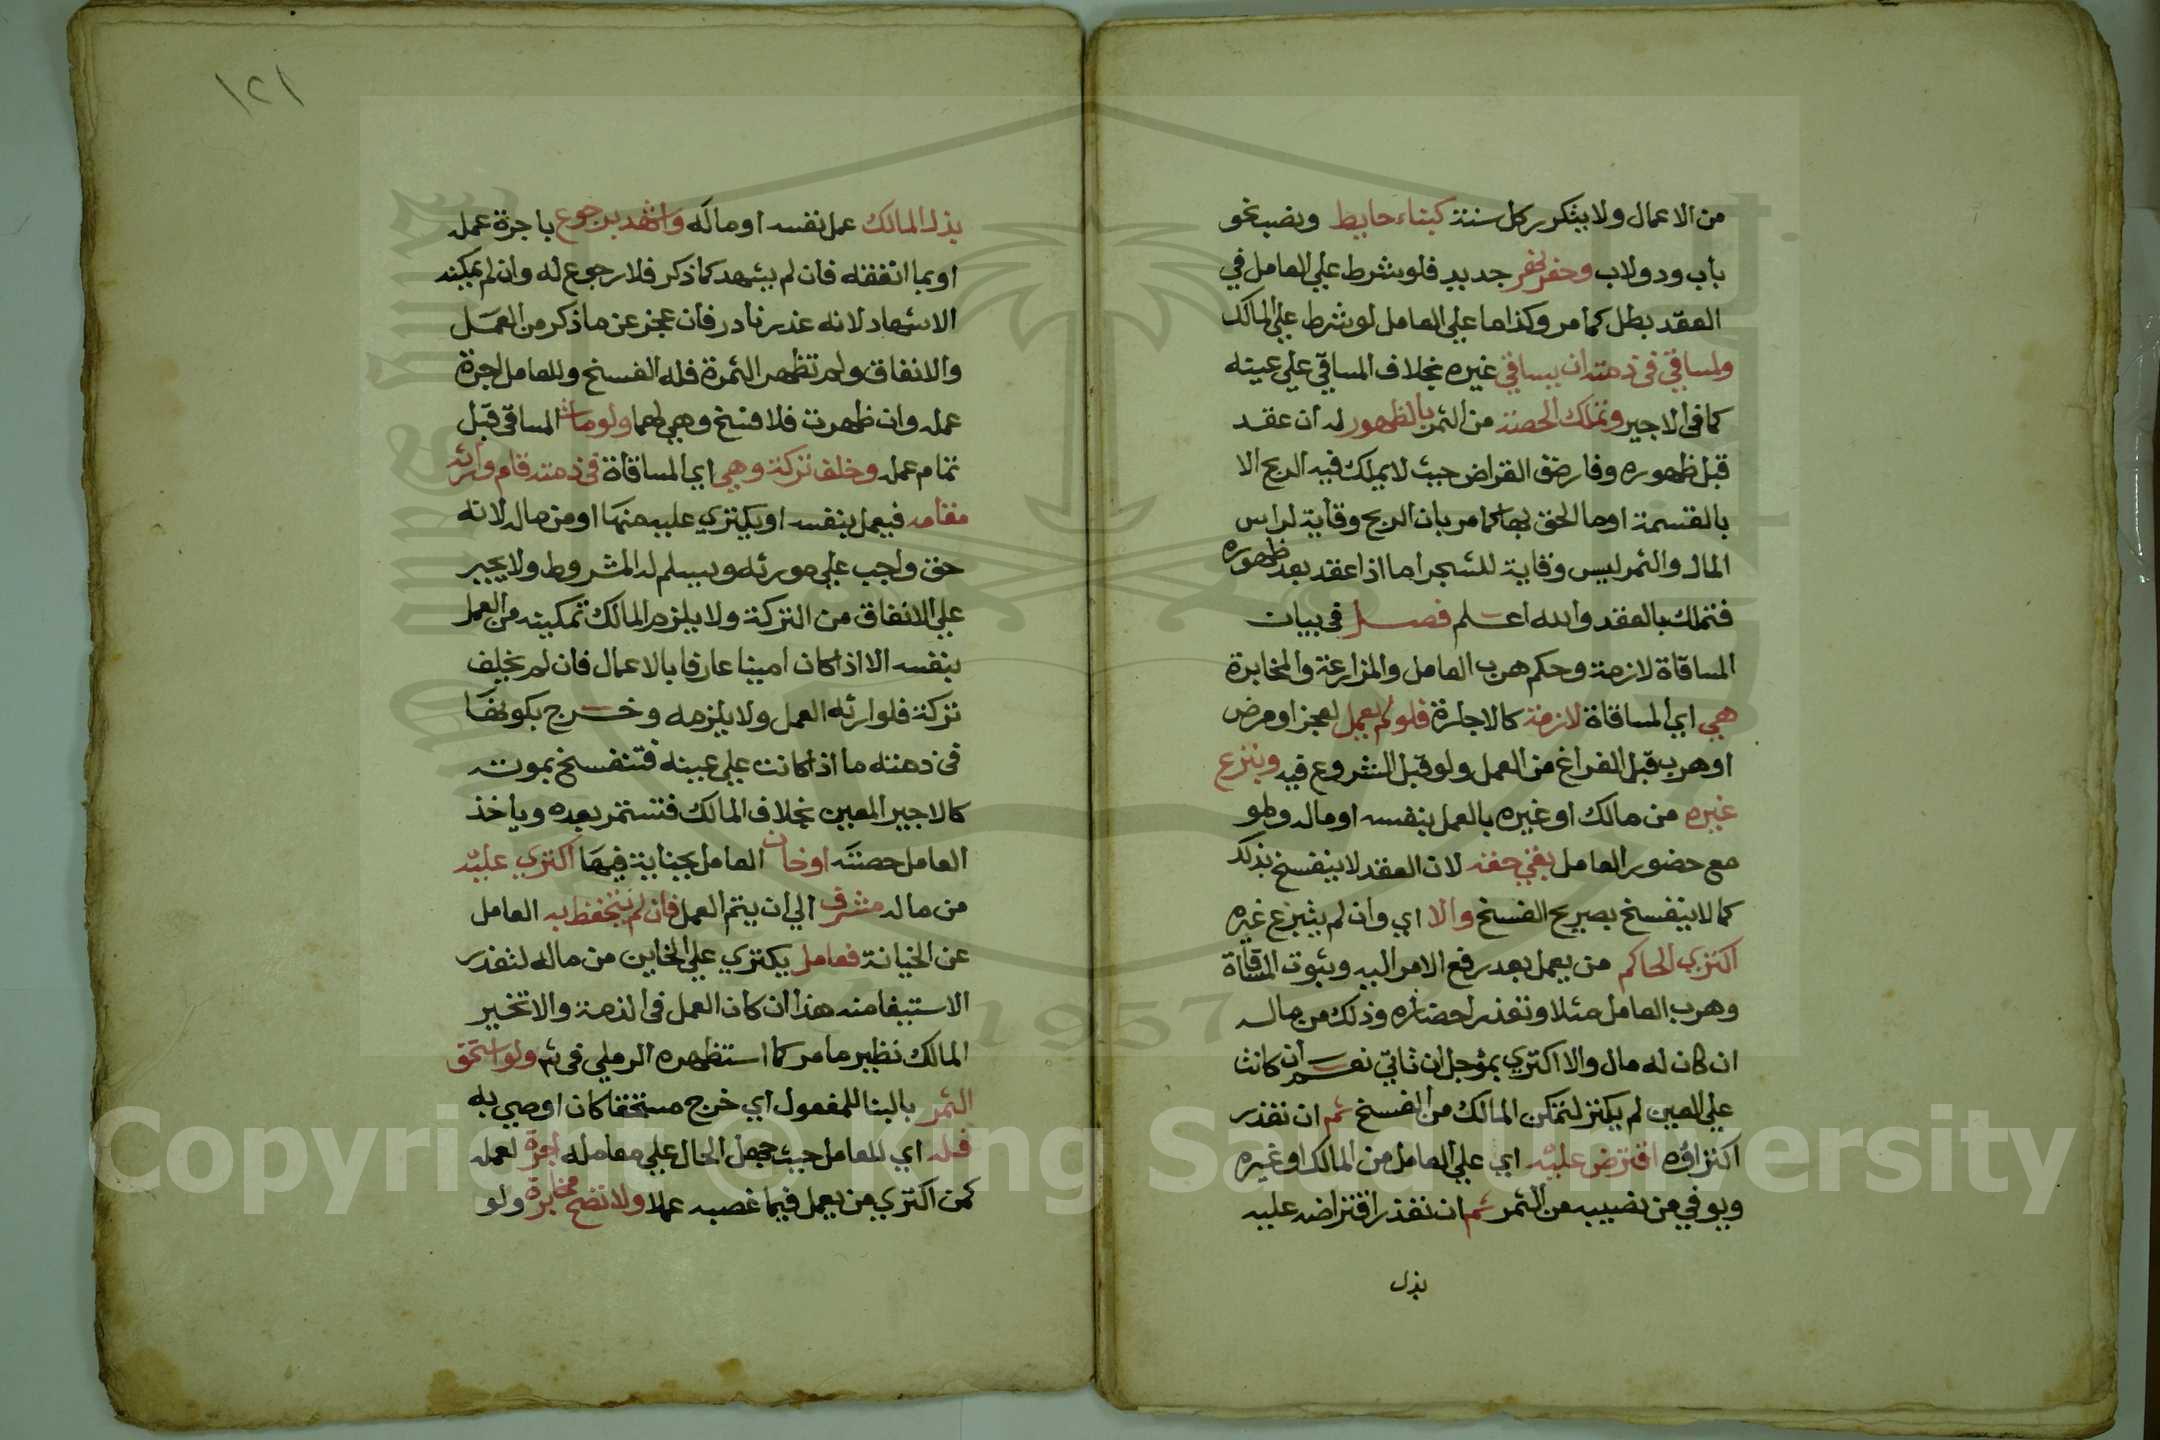 من الاعمال ولا يتكرر كل سنة كبناء حايط ونصب نحو
باب ودولاب وحفر نهر جديد فلو شرط علي العامل في
العقد بطل كما مر وكذا ما علي العامل لو شرط علي المالك
ولمساقي في ذمته ان يساقي غيره بخلاف المساقي علي عينه
كما في الاجير وتملك الحصة من الثمر بالظهور له ان عقد
قبل ظهوره وفارق القراض حيث لا يملك فيه الربح الا
بالقسمة او ما الحق بها كما مر بان الربح وقاية لراس
المال والثمر ليس وقاية للشجر اما اذا عقد بعد ظهوره
فتملك بالعقد والله اعلم فصل في بيان
المساقاة لازمة وحكم هرب العامل والمزارعة والمخابرة
هي اي المساقاة لازمة كالاجارة فلو لم يعمل لعجز او مرض
او هرب قبل الفراغ من العمل ولو قبل الشروع فيه وتبرع
غيره من مالك او غيره بالعمل بنفسه او ماله ولو
مع حضور العامل بقي حقه لان العقد لا ينفسخ بذلك
كما لا ينفسخ بصريح الفسخ والا اي وان لم يتبرع غيره
اكتري الحاكم من يعمل بعد رفع الامر اليه وثبوت المساقاة
وهرب العامل مثلا وتعذر احضاره وذلك من ماله
ان كان له مال والا اكتري بمؤجل ان تاتي نعم ان كانت
علي العين لم يكتر لتمكن المالك من الفسخ ثم ان تعذر
اكتراؤه اقترض عليه اي علي العامل من المالك او غيره
ويوفي من نصيبه من الثمر ثم ان تعذر اقتراضه عليه
بذل
١٢١
بذل المالك عمل نفسه او ماله واشهد برجوع باجرة عمله
او بما انفقه فان لم يشهد كما ذكر فلا رجوع له وان لم يمكنه
الاشهاد لانه عذر نادر فان عجز عن ما ذكر من العمل
والانفاق ولم تظهر الثمرة فله الفسخ وللعامل اجرة
عمله وان ظهرت فلا فسخ وهي لهما ولو مات المساقي قبل
تمام عمله وخلف تركة وهي اي المساقاة في ذمته قام وارثه
مقامه فيعمل بنفسه او يكتري عليه منها او من ماله لانه
حق واجب علي مورثه ويسلم له المشروط ولا يجبر
علي الانفاق من التركة ولا يلزم المالك تمكينه من العمل
بنفسه الا اذا كان امينا عارفا بالاعمال فان لم يخلف
تركة فلوارثه العمل ولا يلزمه وخرج بكونها
في ذمته ما اذا كانت علي عينه فتنفسخ بموته
كالاجير المعين بخلاف المالك فتستمر بعده وياخذ
العامل حصته او خان العامل بجناية فيها اكتري عليه
من ماله مشرف الي ان يتم العمل فان لم يتحفظ به العامل
عن الخيانة فعامل يكتري علي الخاين من ماله لتعذر
الاستيفا منه هذا ان كان العمل في الذمة والا تخير
المالك نظير ما مر كما استظهره الرملي في ش ولو استحق
الثمر بالبنا للمفعول اي خرج مستحقا كان اوصي به
فله اي للعامل حيث جهل الحال علي معامله اجرة لعمله
كمن اكتري من يعمل فيما غصبه عملا ولا تصح مخابرة ولو
Copyright © King Saud University
1957